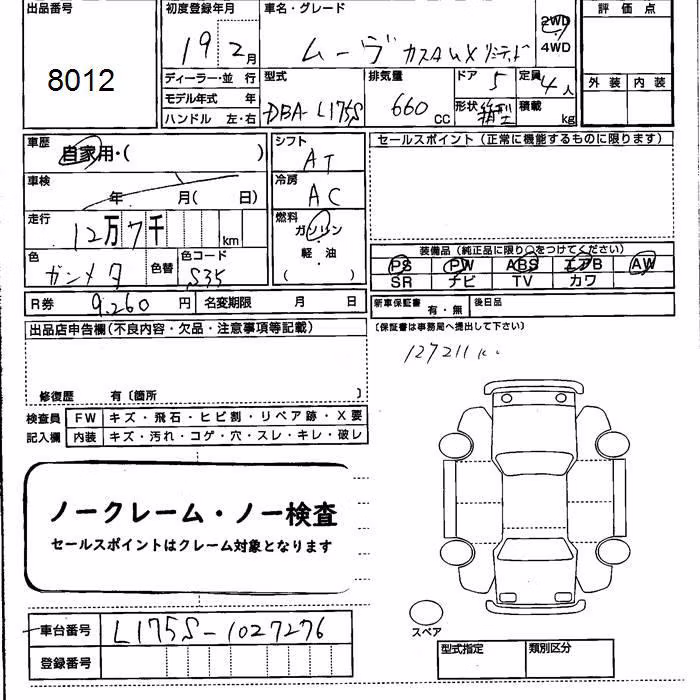 出品番号
8012
初度登録年月
19 2月
車名・グレード
ムーヴ カスタムX リミテッド
2WD
4WD
評価点
外装 内装
ディーラー・並 行
モデル年式 年
ハンドル 左・右
型式
DBA-L175S
排気量
660 CC
ドア 5
定員 4人
形状 箱型
積載 kg
車歴
自家用・( )
車検
年 月( 日)
走行
12万7千 km
色
ガンメタ
色替
色コード
S35
シフト
AT
冷房
AC
燃料
ガソリン
・
軽油
( )
セールスポイント(正常に機能するものに限ります)
装備品(純正品に限り○をつけてください)
PS PW ABS エアB AW
SR ナビ TV カワ
R券 9,260 円 名変期限 月 日
新車保証書 有・無 後日品
(保証書は事務局へ提出して下さい)
出品店申告欄(不良内容・欠品・注意事項等記載)
127211
修復歴 有〔箇所 〕
検査員
記入欄
FW キズ・飛石・ヒビ割・リペア跡・X要
内装 キズ・汚れ・コゲ・穴・スレ・キレ・破レ
ノークレーム・ノー検査
セールスポイントはクレーム対象となります
車台番号 L175S-1027276
登録番号
スペア
型式指定 類別区分